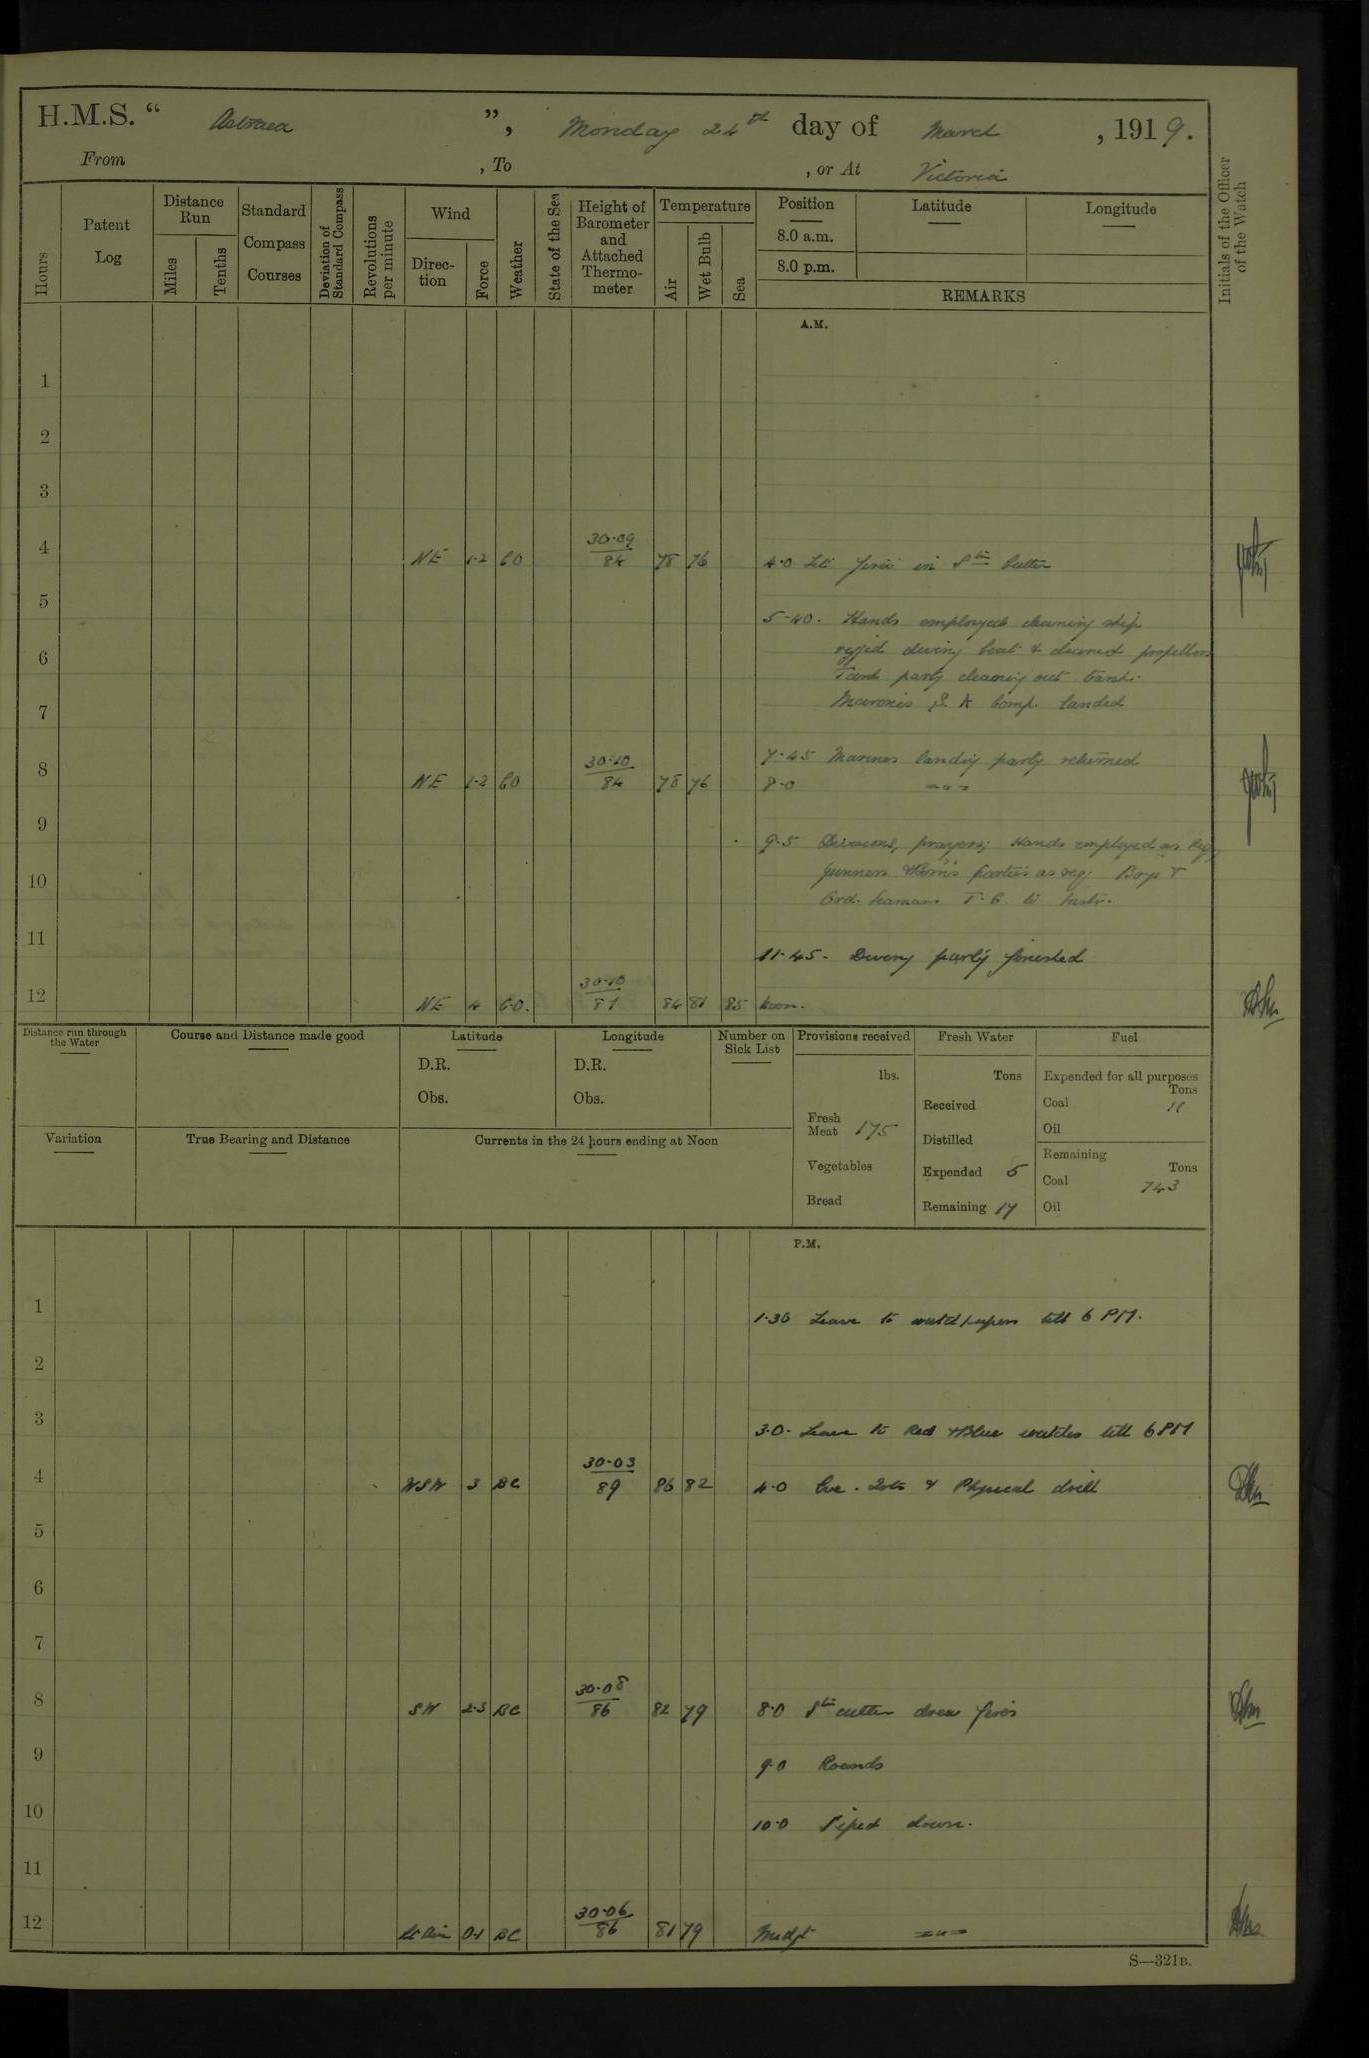 H.M.S. “ Astraea ”, Monday 24th day of March, 1919.
From , To , or At Victoria
Hours
Patent Log
Distance Run
Miles
Tenths
Standard Compass Courses
Deviation of Standard Compass
Revolutions per minute
Wind
Direction
Force
Weather
State of the Sea
Height of Barometer and Attached Thermometer
Temperature
Air
Wet Bulb
Sea
Position
8.0 a.m.
8.0 p.m.
Latitude
Longitude
REMARKS
Initials of the Officer of the Watch
A.M.
1
2
3
4 NE 1-2 CO 30·09 84 78 76 4·0 Lit fires in Stm Cutter
5
5-40. Hands employed cleaning ship
6 diving boat & cleared propellors
Tank party cleaning out tank.
7 landed
7-45 Marines landing party returned
8 NE 1-2 CO 30·10 84 78 76 8·0 -"-
9
9·5 Divisions, prayers; Hands employed as Req
10 Gunners parties as req. Boys &
Ord. Seamans T.C. to Instr.
11
11-45- Diving party finished
12 NE 4 C.O. 30·10 87 84 81 85 Noon.
Distance run through the Water
Course and Distance made good
Latitude
D.R.
Obs.
Longitude
D.R.
Obs.
Number on Sick List
Provisions received
lbs.
Fresh Meat 175
Vegetables
Bread
Fresh Water
Tons
Received
Distilled
Expended 5
Remaining 17
Fuel
Expended for all purposes
Tons
Coal 11
Oil
Remaining
Tons
Coal 743
Oil
Variation
True Bearing and Distance
Currents in the 24 hours ending at Noon
P.M.
1 1·30 Leave to watchkeepers till 6 PM.
2
3 3·0- Leave to Red & Blue watches till 6 PM
4 WSW 3 BC 30·03 89 86 82 4·0 Eve. Qrts & Physical drill
5
6
7
8 SW 2-3 BC 30·08 86 82 79 8·0 Stm cutter drew fires
9 9·0 Rounds
10 10·0 Piped down.
11
12 Lt Airs 0-1 BC 30·06 86 81 79 Midgt -"-
S—321B.